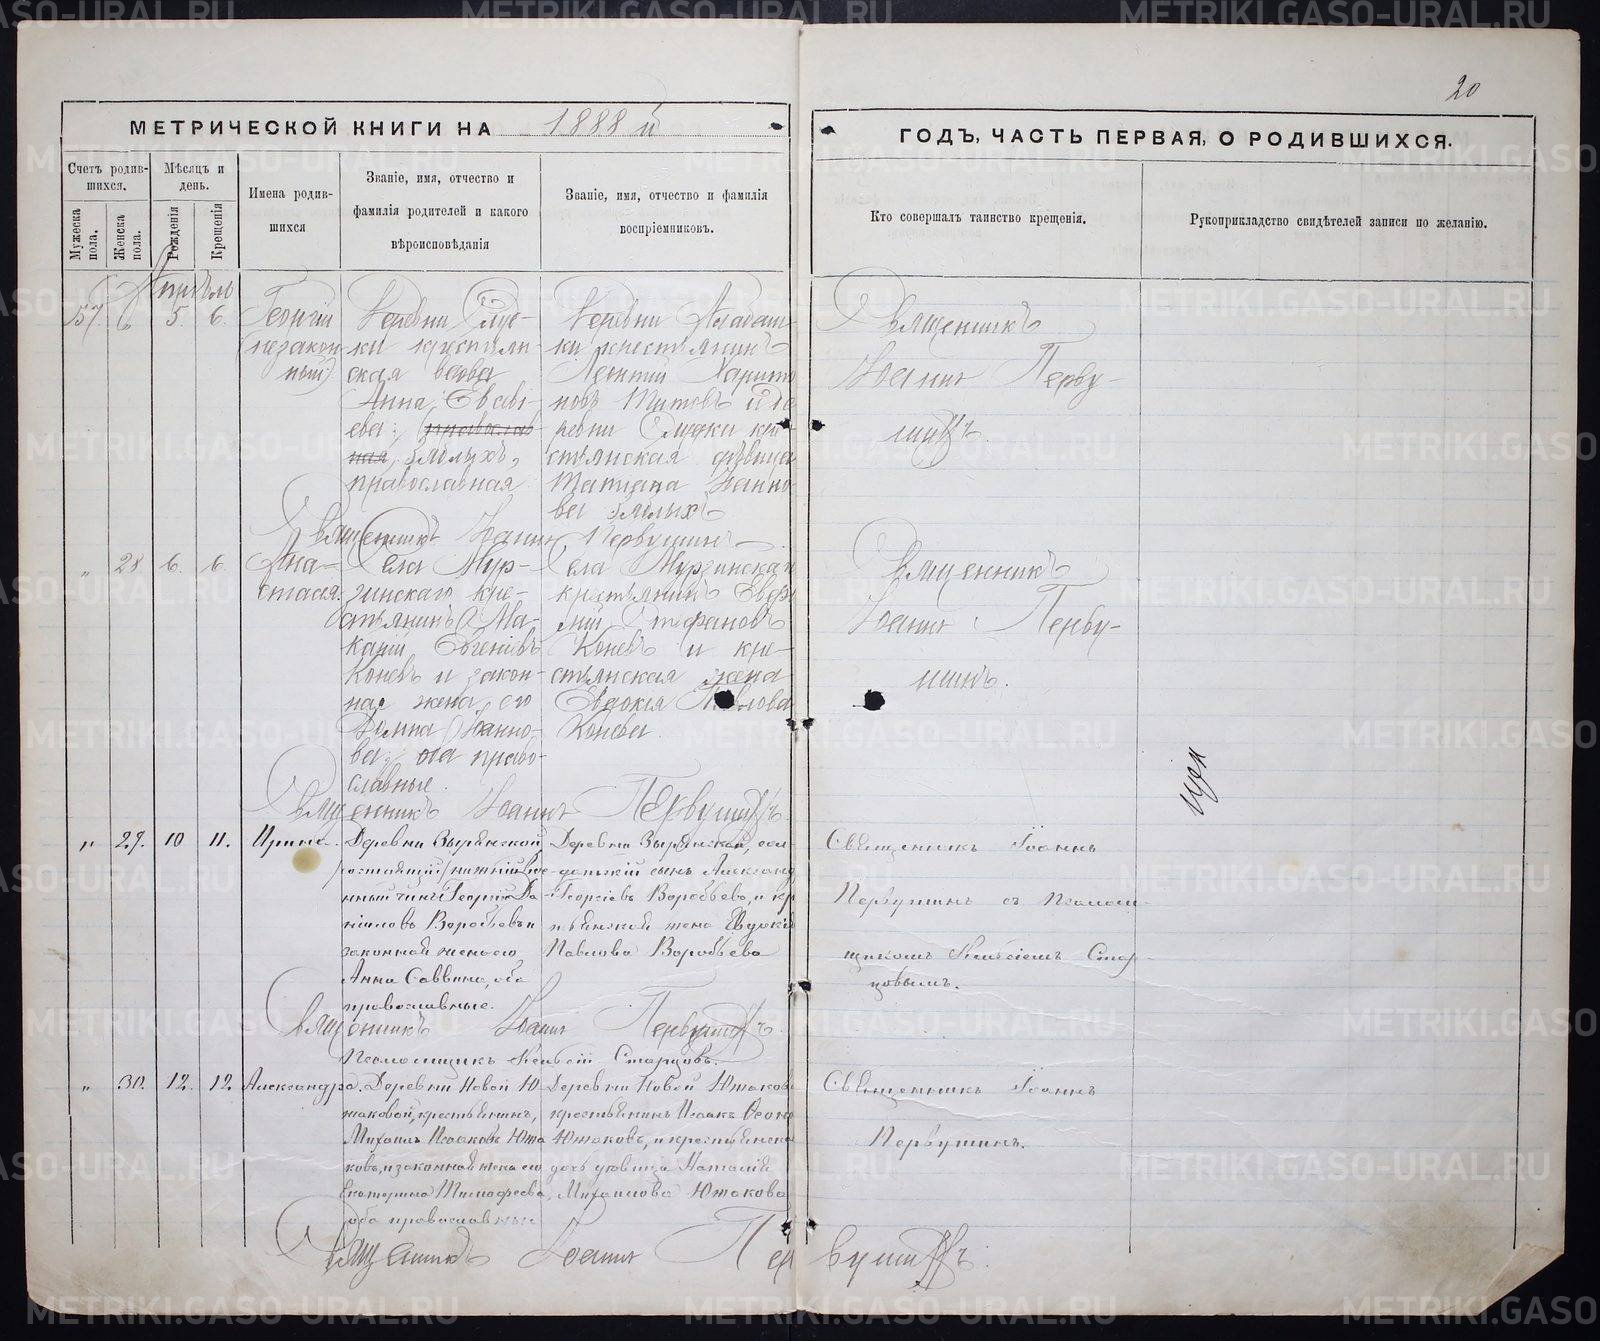 20
МЕТРИЧЕСКОЙ КНИГИ НА 1888 й
ГОДЪ, ЧАСТЬ ПЕРВАЯ, О РОДИВШИХСЯ.
Счетъ родив-
шихся.
Мѣсяцъ и
день.
Мужеска
пола.
Женска
пола.
Рожденія
Крещенія
Имена родив-
шихся
Званіе, имя, отчество и
фамилія родителей и какого
вѣроисповѣданія
Званіе, имя, отчество и фамилія
воспріемниковъ.
Кто совершалъ таинство крещенія.
Рукоприкладство свидѣтелей записи по желанію.
Апрѣль
57 5 6
Георгій
(незакон-
ный)
Деревни Глус-
ки крестьян-
ская вдова
Анна
православ
ная Бѣлыхъ,
православная
Деревни
ки крестьянинъ
Леонтій Харито
новъ Титовъ и де
ревни кре
стьянская дѣвица
Татіана Іоанно
ва Бѣлыхъ
Священникъ
Іоаннъ Перву-
шинъ.
Священникъ Іоаннъ Первушинъ
„ 28 6. 6.
Ана-
стасія.
Села Мур-
зинскаго кре-
стьянинъ Ма-
карій Евгеніевъ
Коневъ и закон-
ная жена его
Домна Іоанно-
ва; оба право-
славные.
Села Мурзинскаго
крестьянинъ
Стефановъ
Коневъ и кре-
стьянская жена
Евдокія Павлова
Конева.
Священникъ
Іоаннъ Перву-
шинъ.
Священникъ Іоаннъ Первушинъ.
„ 29. 10 11.
Ирина
Деревни Зырянской
состоящій нижній Вое
нный чинъ Георгій Да
ніиловъ Воробьевъ и
законная жена его
Анна Саввина, оба
православные.
Деревни Зырянской,
сынъ Александ
Георгіевъ Воробьевъ, и кр
стьянская жена Евдокія
Павлова Воробьева
Священникъ Іоаннъ
Первушинъ съ Псалом-
щикомъ Стар-
цовымъ.
Священникъ Іоаннъ Первушинъ.
Псаломщикъ Старцовъ.
„ 30. 12. 12.
Александра.
Деревни Новой Ю-
жаковой, крестьянинъ,
Михаилъ Исааковъ Южа
ковъ, и законная жена его
Екатерина Тимофеева,
оба православные
Деревни Новой Южаков
крестьянинъ Исаакъ
Южаковъ, и крестьянска
дочь дѣвица Наталія
Михаилова Южакова
Священникъ Іоаннъ
Первушинъ.
Священникъ Іоаннъ Первушинъ.
METRIKI.GASO-URAL.RU